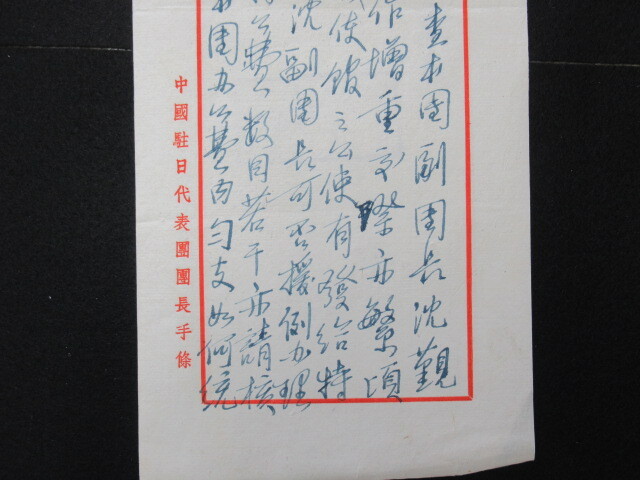 查本團副團長沈覲
作增重交際亦繁頃
使館之公使有發給特
沈副團長可否援例办理
公費數目若干亦請核
本團办公費內勻支如何統
中國駐日代表團團長手條